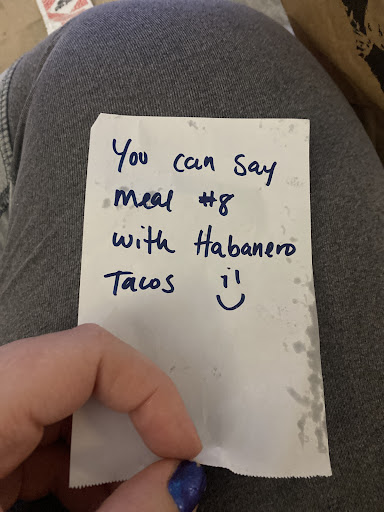 You can say
meal #8
with Habanero
Tacos